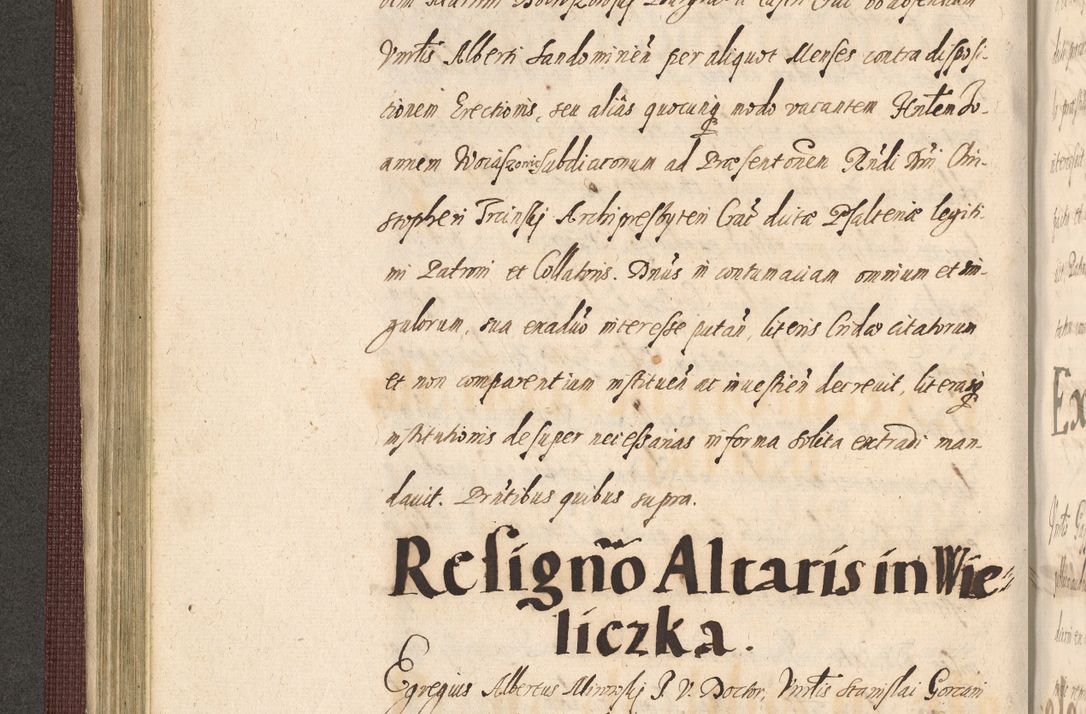 Vnrtis Alberti Sandominen̄ per aliquot Menses contra disposi-
tionem Erectionis, seu aliàs quocunq modo vacantem Hnlem Jo-
annem Woiaszowic Subdiaconum ad Præsentōnem Rn̄di Dn̄i Chri-
stopheri Trcinskj Archipresbyteri Crac̄ dictæ Psalteriæ legiti-
mi Patroni et Collatoris. Dn̄us in contumaciam omnium et sin-
gulorum, sua quomodolibet interesse putan̄, literis Cridæ citatorum
et non comparentium instituen̄ ac inuestien̄ decreuit, literasq
institutionis desuper necessarias in forma solita extradi man-
dauit. Prn̄tibus quibus supra.
Resignō Altaris in Wie-
liczka.
Egregius Albertus Mirowskj I. V. Doctor, Vnrtis Stanislai Gorcani